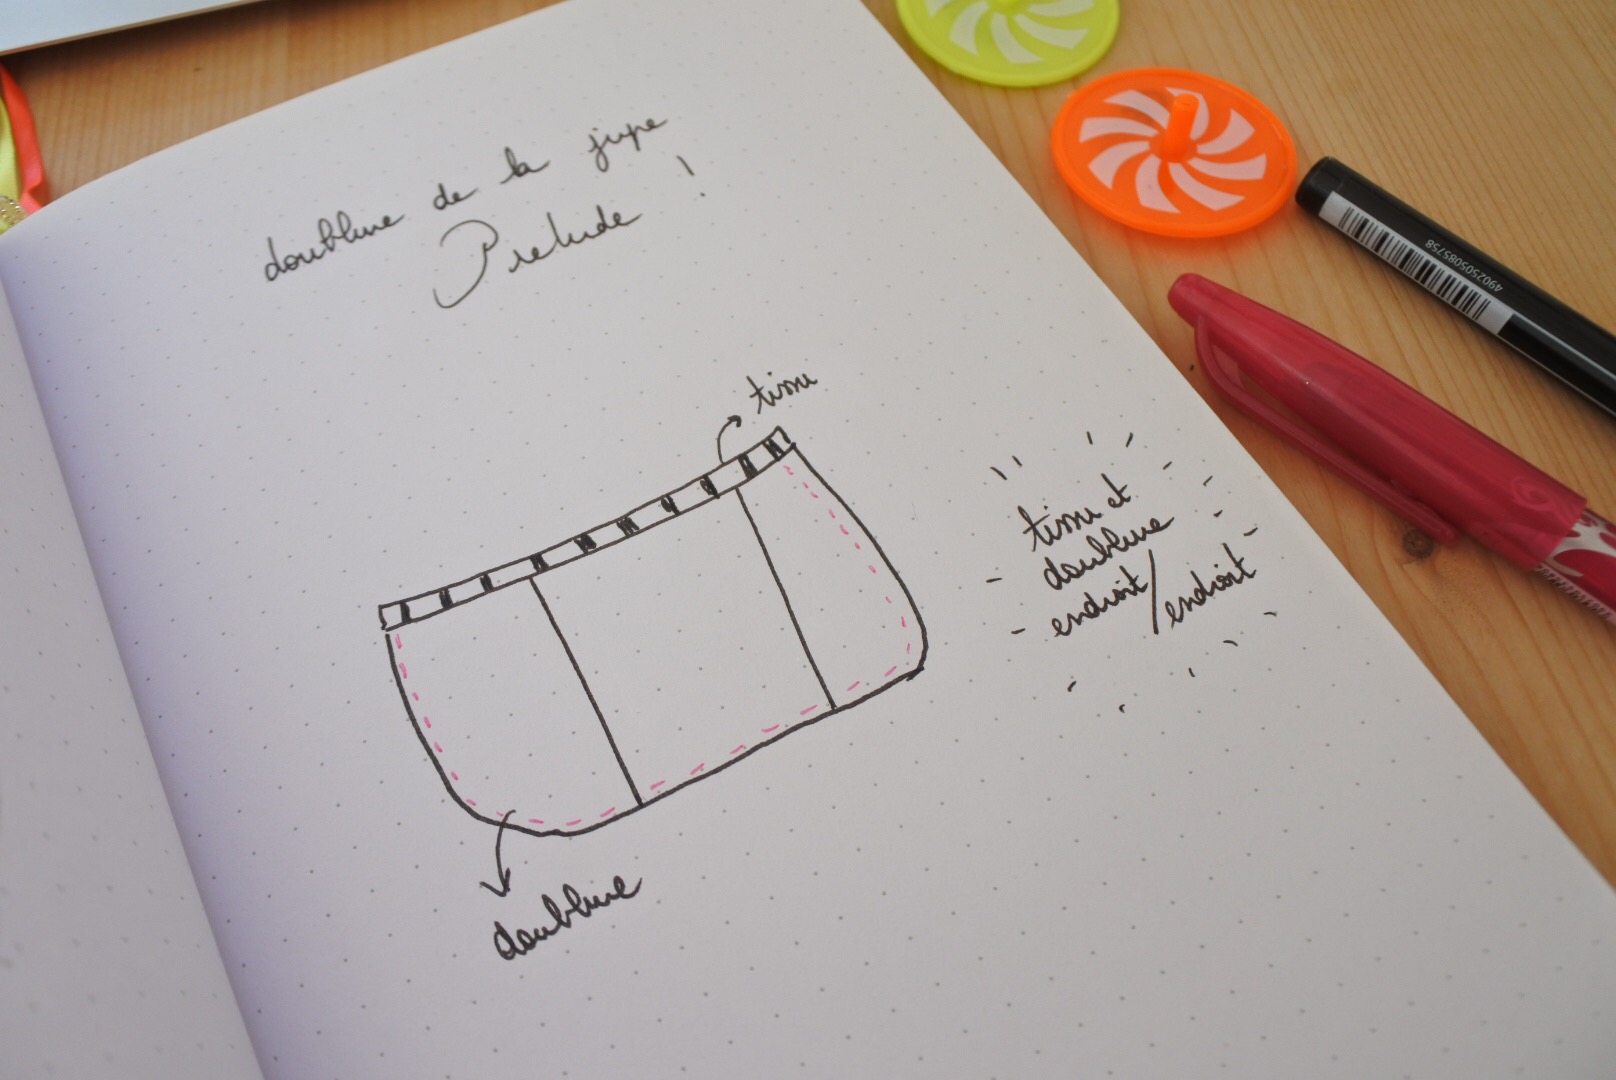 doublure de la jupe
Prelude !
tissu
tissu et
doublure
endroit/endroit
doublure
4902505085758